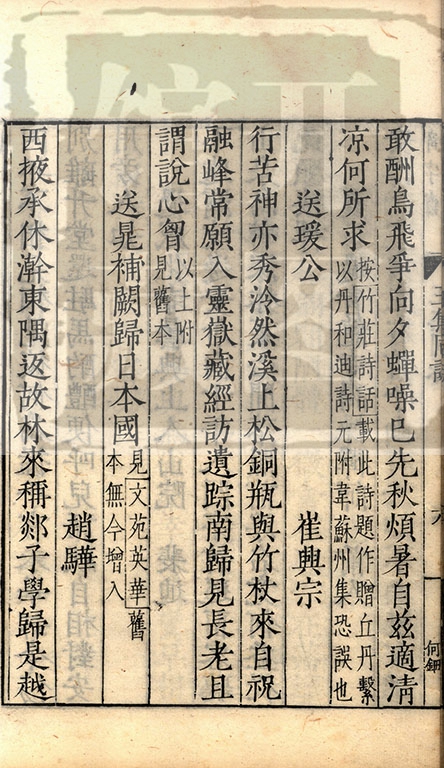 敢酬鳥飛爭向夕蟬噪已先秋煩暑自兹適清
凉何所求按竹莊詩話載此詩題作贈丘丹繫
以丹和迪詩元附韋蘇州集恐誤也
送瑗公
崔興宗
行苦神亦秀泠然溪上松銅瓶與竹杖來自祝
融峰常願入靈嶽藏經訪遺踪南歸見長老且
謂說心胷以上附
見舊本
送晁補闕歸日本國見文苑英華舊
本無今增入
趙驊
西掖承休澣東隅返故林來稱郯子學歸是越
何鈿